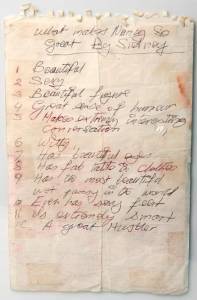 what makes Nancy So
great By Sidney
1 Beautiful
2 Sexy
3 Beautiful figure
4 Great sense of humour
5 Makes extremely interesting
conversation
6 Witty
7 Has beautiful eyes
8 Has fab taste in clothes
9 Has the most beautiful
wet pussy in the world
10 Even has sexy feet
11 Is extremely smart
12 A great Hustler